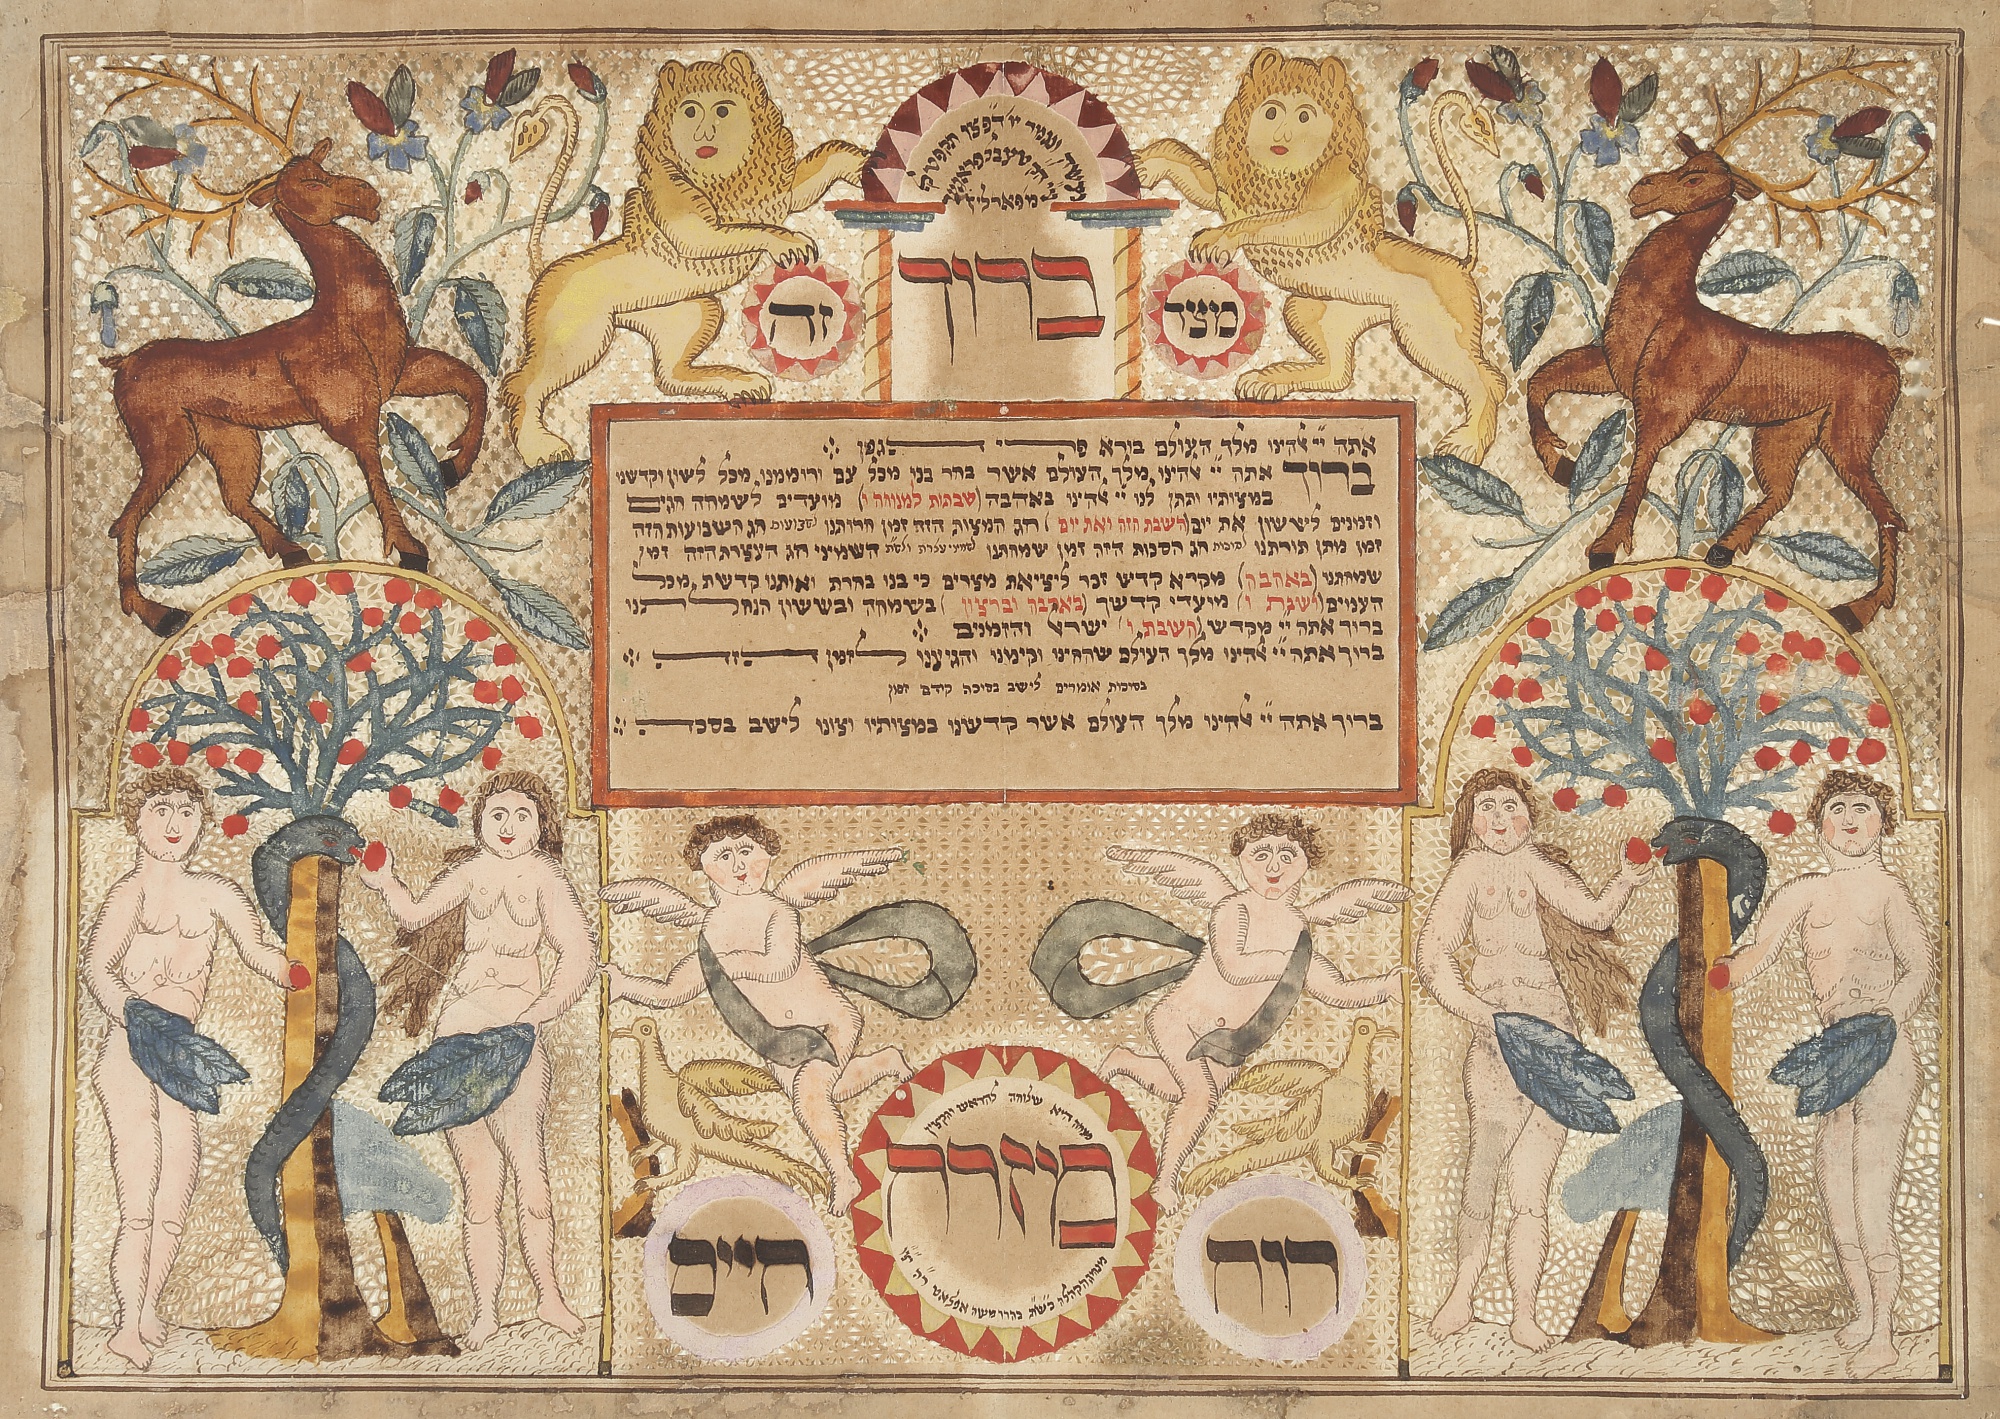 ברוך
מצד
זה
אתה יי אלהינו מלך העולם בורא פרי הגפן
ברוך אתה יי אלהינו מלך העולם אשר בחר בנו מכל עם ורוממנו מכל לשון וקדשנו
במצותיו ותתן לנו יי אלהינו באהבה (שבתות למנוחה ו) מועדים לשמחה חגים
וזמנים לששון את יום (השבת הזה ואת יום) חג המצות הזה זמן חרותנו לשבועות חג השבועות הזה
זמן מתן תורתנו לסוכות חג הסכות הזה זמן שמחתנו לשמיני עצרת השמיני חג העצרת הזה זמן
שמחתנו (באהבה) מקרא קדש זכר ליציאת מצרים כי בנו בחרת ואותנו קדשת מכל
העמים (ושבת ו) מועדי קדשך (באהבה וברצון) בשמחה ובששון הנחלתנו
ברוך אתה יי מקדש (השבת ו) ישראל והזמנים
ברוך אתה יי אלהינו מלך העולם שהחינו וקימנו והגיענו לזמן הזה
בסוכות אומרים לישב בסוכה קודם זמן
ברוך אתה יי אלהינו מלך העולם אשר קדשנו במצותיו וצונו לישב בסכה
מזרח
רוח
חיים